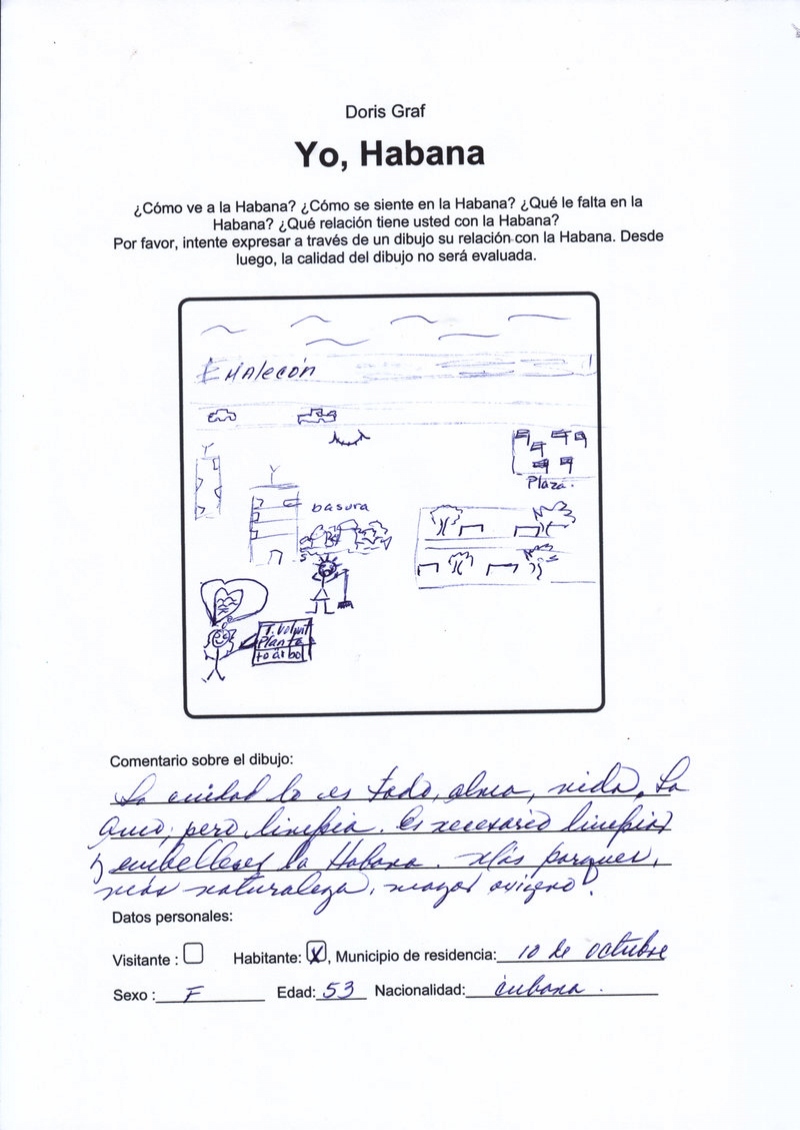 Doris Graf
Yo, Habana
¿Cómo ve a la Habana? ¿Cómo se siente en la Habana? ¿Qué le falta en la
Habana? ¿Qué relación tiene usted con la Habana?
Por favor, intente expresar a través de un dibujo su relación con la Habana. Desde
luego, la calidad del dibujo no será evaluada.
Malecón
Plaza.
basura
Planta
tu árbol
Comentario sobre el dibujo:
La ciudad lo es todo, alma, vida. La
amo, pero limpia. Es necesario limpiar
y embellecer la Habana. Más parques,
más naturaleza, mayor oxígeno.
Datos personales:
Visitante : Habitante: X, Municipio de residencia: 10 de octubre
Sexo : F Edad: 53 Nacionalidad: cubana.